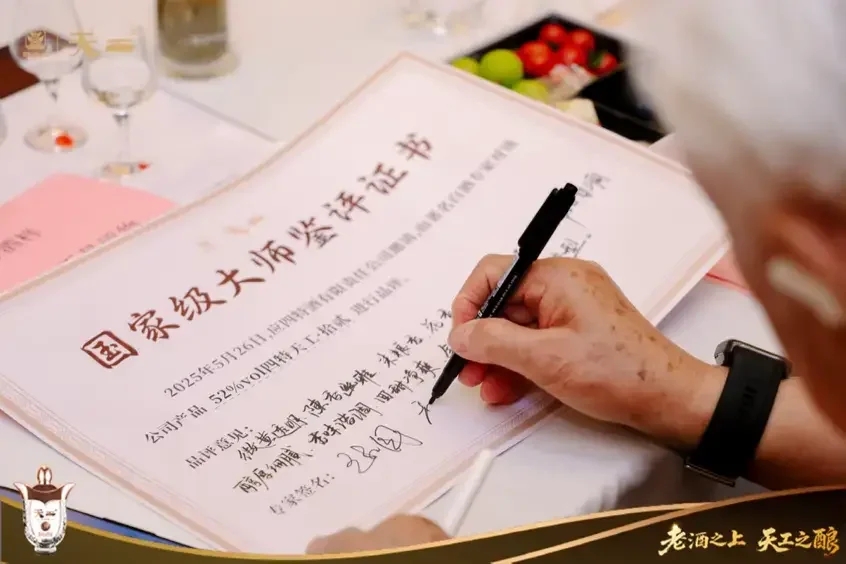 天工
国家级大师鉴评证书
2025年5月26日,应四特酒有限责任公司邀请,由著名白酒专家对该
公司产品 52%vol四特天工·拾贰 进行品评。
品评意见:微黄透明 陈香幽雅
醇厚细腻、香味谐调 回甜净爽
专家签名:
老酒之上 天工之酿